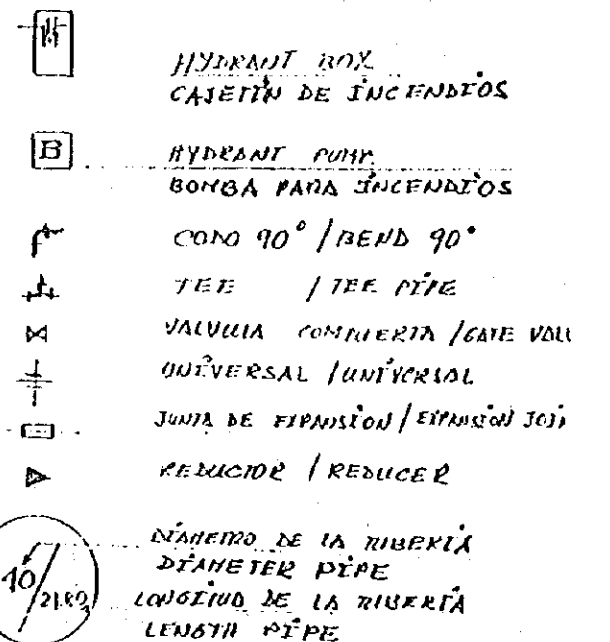 HYDRANT BOX
CAJETIN DE INCENDIOS
B
HYDRANT PUMP.
BOMBA PARA INCENDIOS
CODO 90° / BEND 90°
TEE / TEE PIPE
VALVULA COMPUERTA / GATE VALV
UNIVERSAL / UNIVERSAL
JUNTA DE EXPANSION / EXPANSION JOIN
REDUCTOR / REDUCER
DIAMETRO DE LA TUBERIA
10
DIAMETER PIPE
21.80
LONGITUD DE LA TUBERIA
LENGTH PIPE